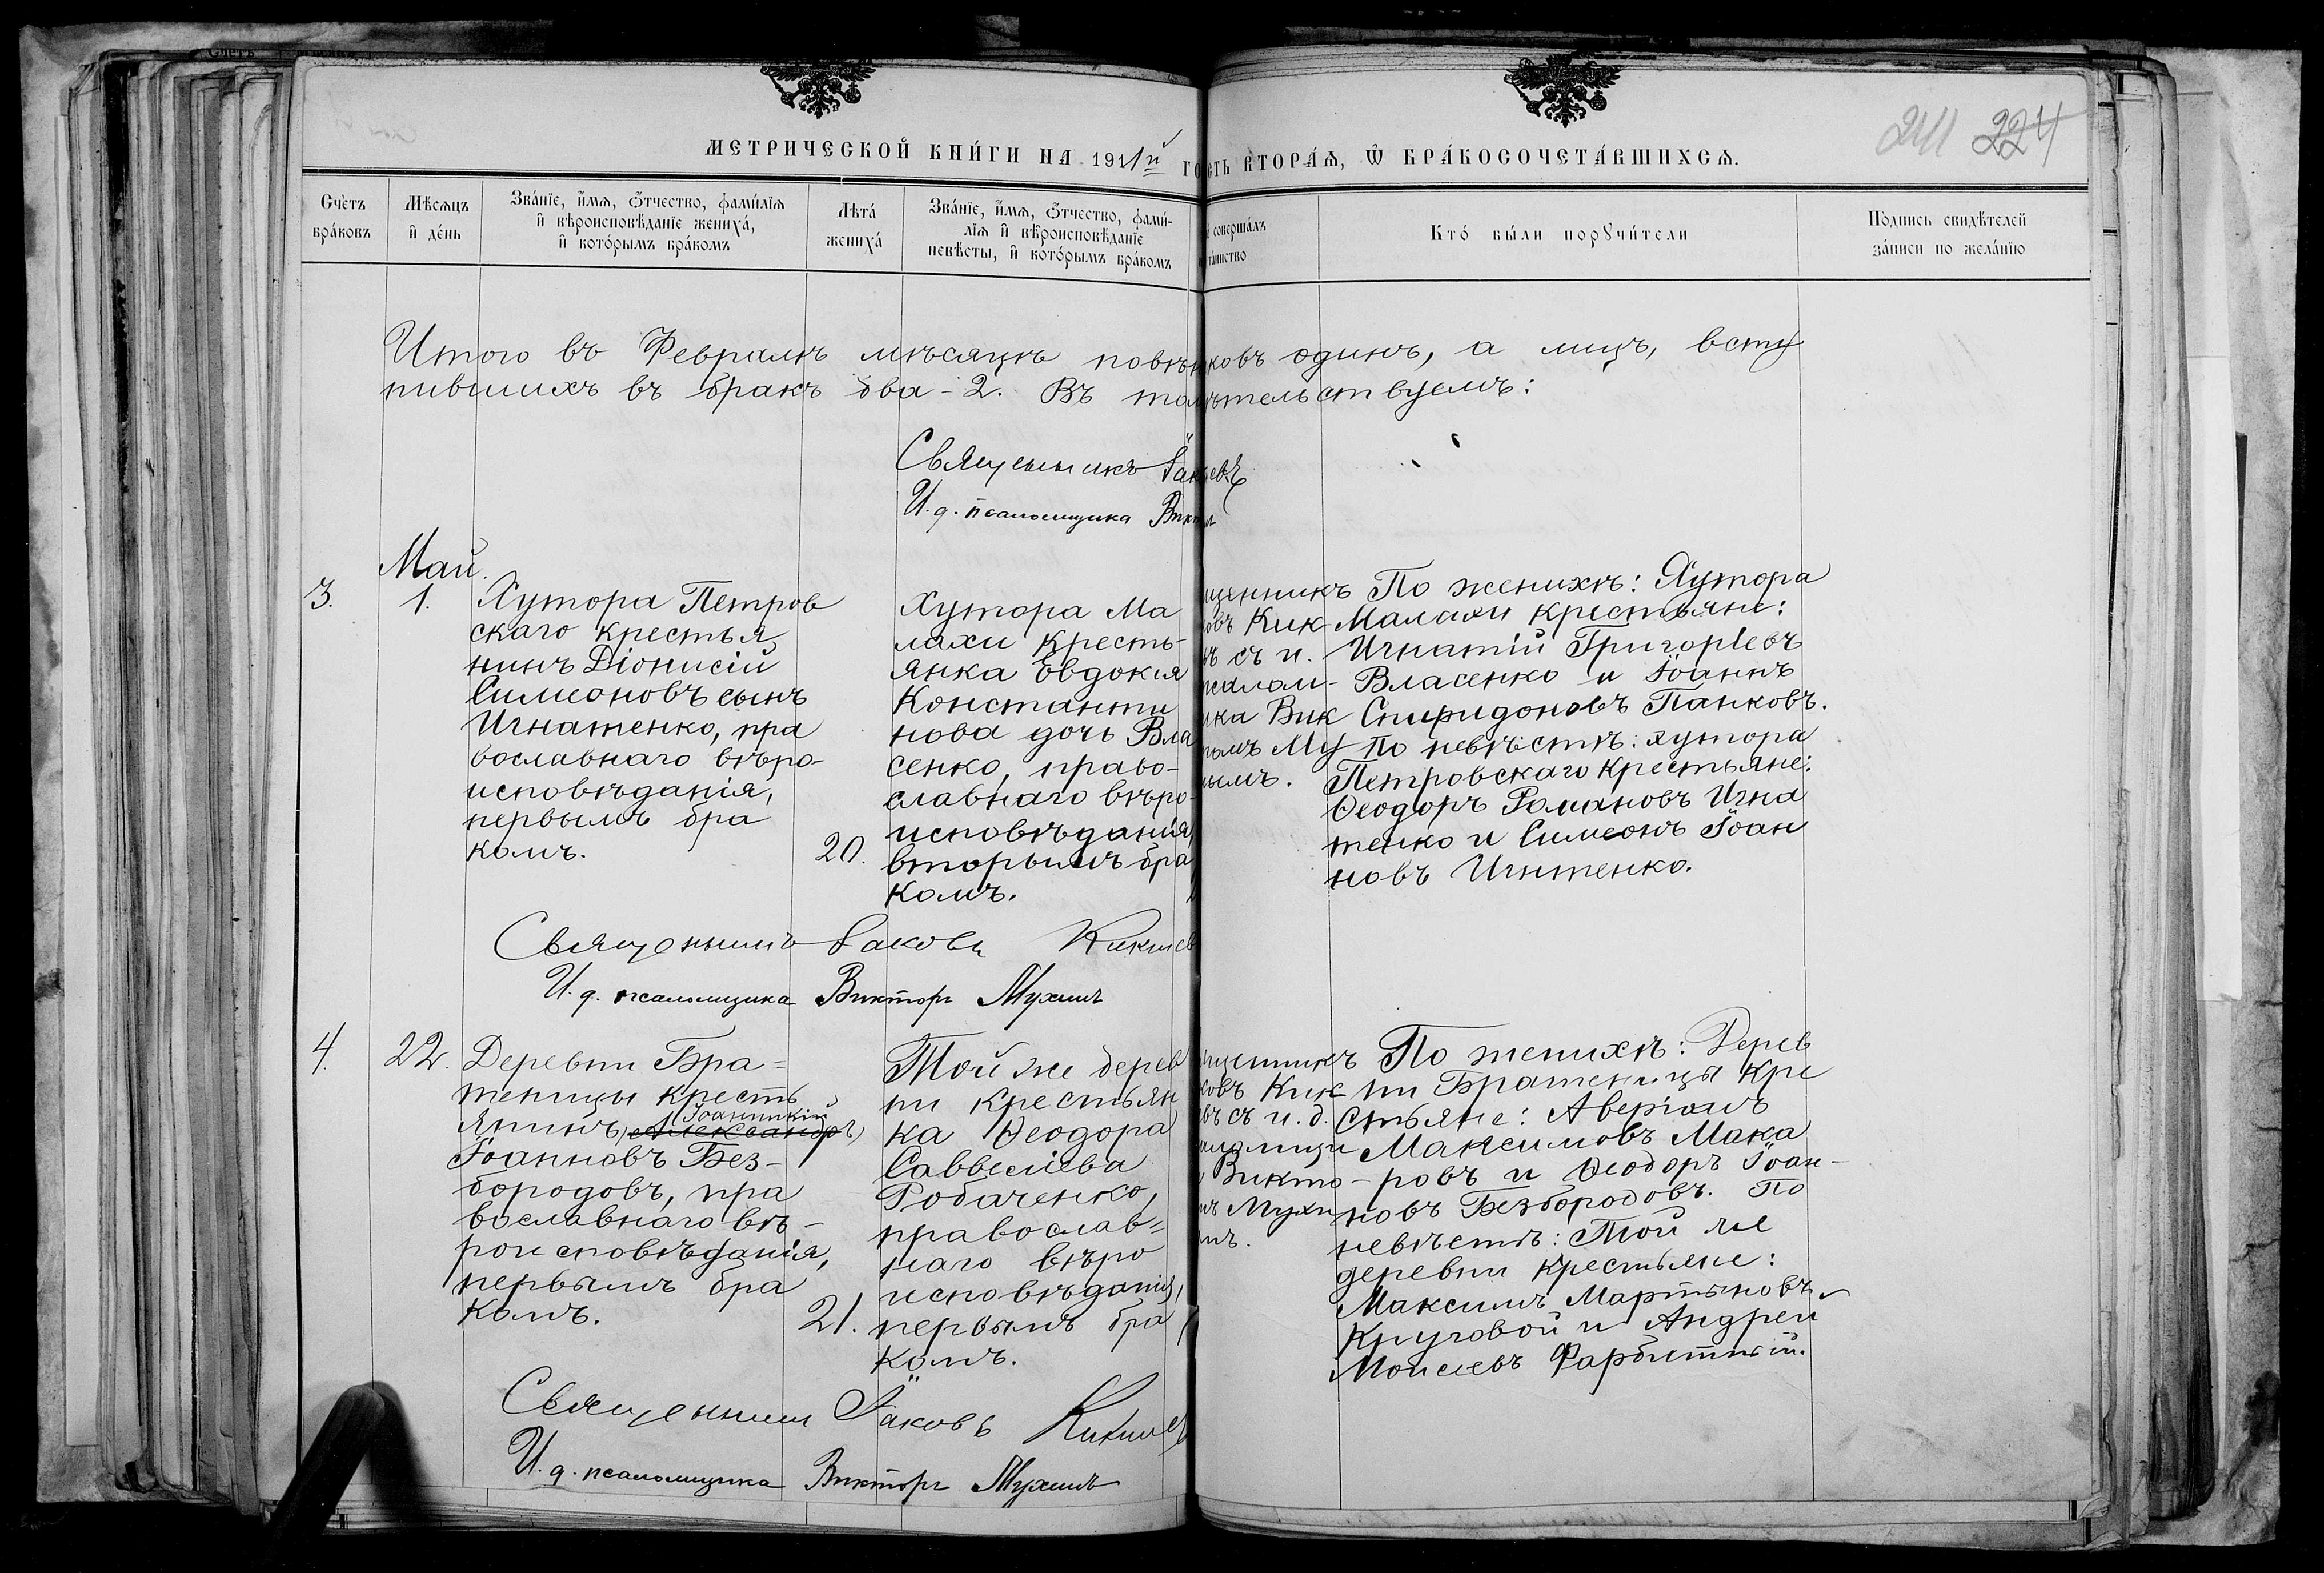 211 224
МЕТРИЧЕСКОЙ КНИ́ГИ НА 1911й ГО
СТЬ ВТОРА́Ѧ, Ѿ БРА́КОСОЧЕТА́ВШИХСѦ.
Сче́тъ бра́ковъ
Мѣ́сѧцъ и҆ де́нь
Зва́нїе, и҆́мѧ, ѻ҆́тчество, фами́лїѧ и҆ вѣроисповѣ́данїе жениха́, и҆ кото́рымъ бра́комъ
Лѣта́ жениха́
Зва́нїе, и҆́мѧ, ѻ҆́тчество, фами́-лїѧ и҆ вѣроисповѣ́данїе невѣ́сты, и҆ кото́рымъ бра́комъ
соверша́лъ та́инство
Кто́ бы́ли порꙋчи́тели
По́дпись свидѣ́телей за́писи по жела́нїю
Итого въ Февралѣ мѣсяцѣ повѣн
ковъ одинъ, а лицъ, всту
пившихъ въ бракъ два - 2. Въ том
ѣтельствуемъ:
Священникъ Іак
евъ
И. д. псаломщика Викт
Май.
3.
1.
Хутора Петров
скаго крестья
нинъ Діонисій
Симеоновъ сынъ
Игнатенко, пра
вославнаго вѣро-
исповѣданія,
первымъ бра
комъ.
20.
Хутора Ма
лахи кресть-
янка Евдокія
Константи
нова дочь Вла
сенко, право-
славнаго вѣро-
исповѣданія,
вторымъ бра
комъ.
щенникъ
овъ Кик-
ъ съ и.
салом-
ика Вик
ромъ Му
нымъ.
По женихѣ: Хутора
Малахи крестьяне:
Игнатій Григоріевъ
Власенко и Іоаннъ
Спиридоновъ Панковъ.
По невѣстѣ: хутора
Петровскаго крестьяне:
Ѳеодоръ Романовъ Игна
тенко и Симеонъ Іоан
новъ Игнтенко.
Священникъ Іаковъ Кикшев
И. д. псаломщика Викторъ Мухинъ
4.
22.
Деревни Бра=
теницы кресть
Іоанникій
янинъ Александръ
Іоанновъ Без-
бородовъ, пра
вославнаго вѣ-
роисповѣданія,
первымъ бра
комъ.
21.
Той же дерев
ни крестьян
ка Ѳеодора
Саввеліева
Робаченко,
православ=
наго вѣро
исповѣданія,
первымъ бра
комъ.
щенникъ
ковъ Кик
въ съ и. д.
аломщи
Викто-
ъ Мухи
мъ.
По женихѣ: Дерев
ни Братеницы кре
стьяне: Аверіанъ
Максимовъ Мака
ровъ и Ѳеодоръ Іоан-
новъ Безбородовъ. По
невѣстѣ: Той же
деревни крестьяне:
Максимъ Мартыновъ
Круговой и Андрей
Моисеевъ Фарбитный.
Священникъ Іаковъ Кикшевъ
И. д. псаломщика Викторъ Мухинъ